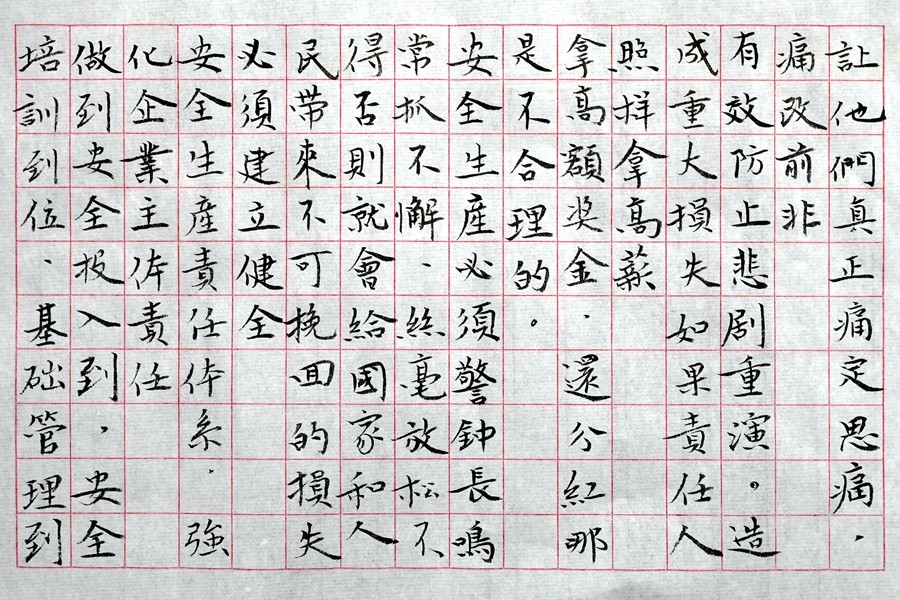 让他們真正痛定思痛.
痛改前非
有效防止悲剧重演。造
成重大損失如果責任人
照样拿高薪
拿高額奖金.還分紅那
是不合理的。
安全生産必須警鈡長鳴
常抓不懈、絲毫放松不
得否則就會給國家和人
民带來不可挽回的損失
必須建立健全
安全生産責任体系.強
化企業主体責任
做到安全投入到,安全
培訓到位、基础管理到